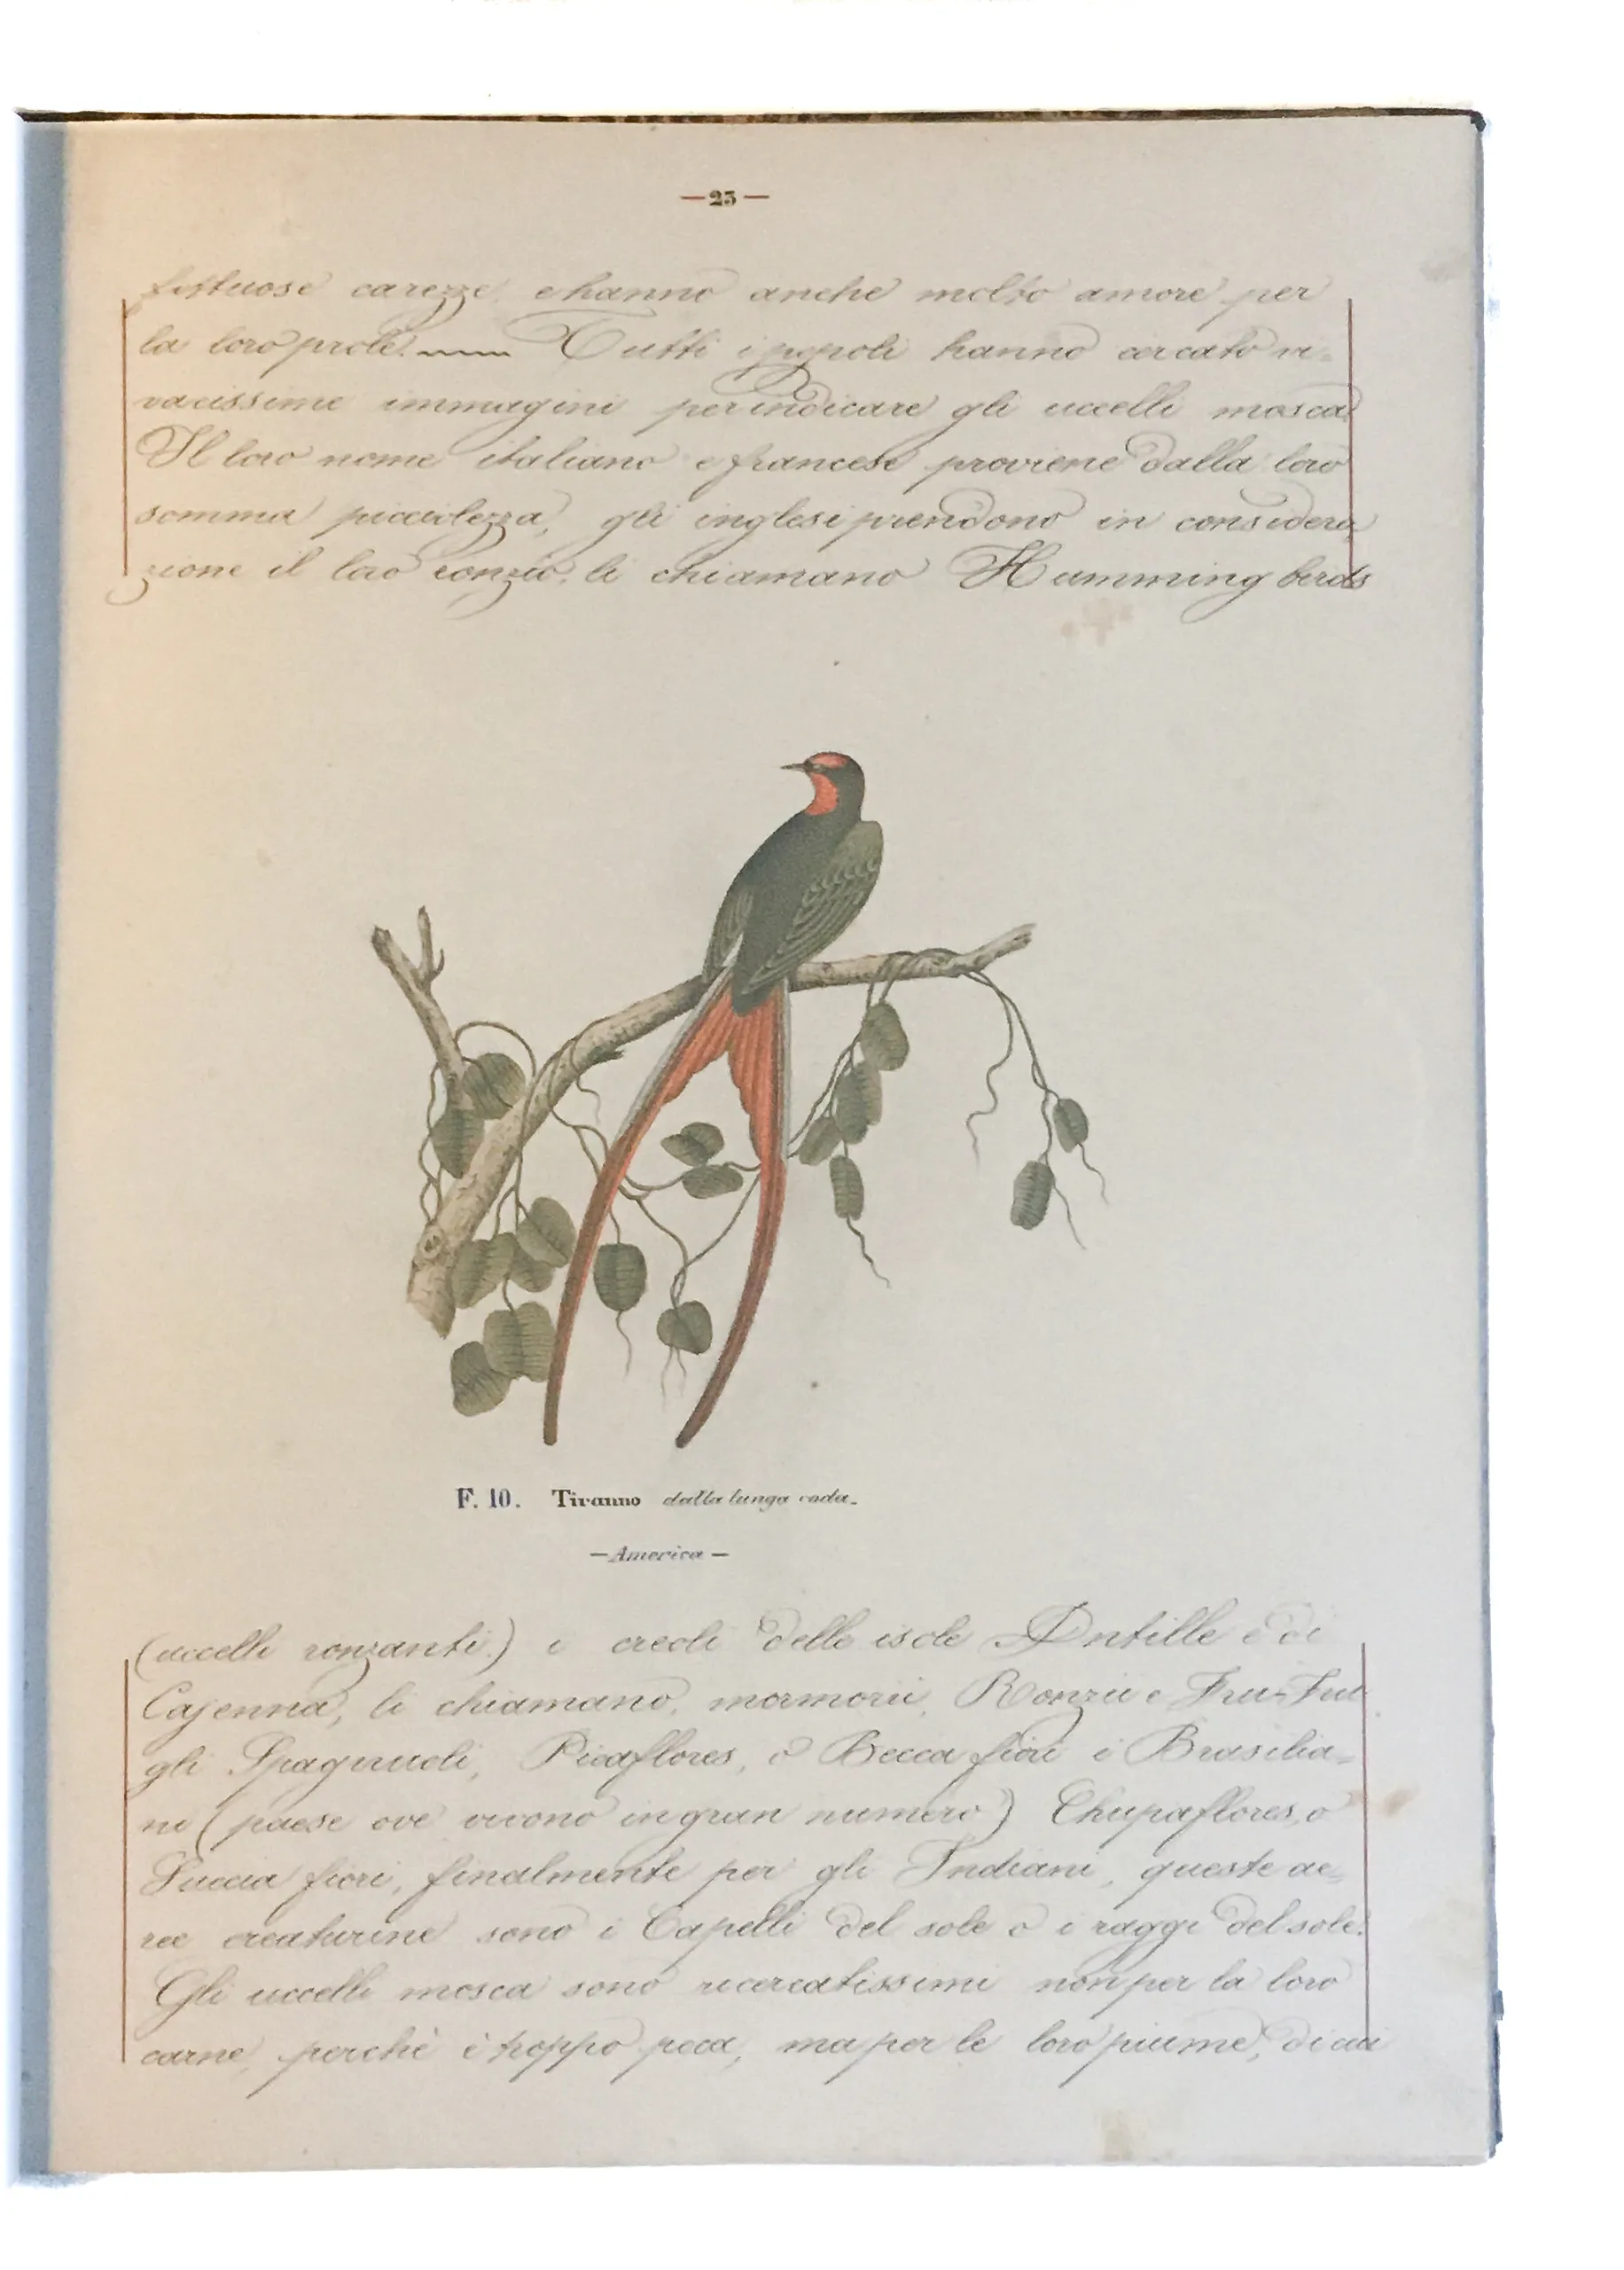 — 25 —
fettuose carezze, e hanno anche molto amore per
la loro prole. Tutti i popoli hanno cercato vi-
vacissime immagini per indicare gli uccelli mosca
Il loro nome italiano e francese proviene dalla loro
somma picciolezza, gli inglesi prendono in considera
zione il loro ronzio, li chiamano Humming birds
F. 10. Tiranno dalla lunga coda.
— America —
(uccelli ronzanti) i creoli delle isole Antille e di
Cajenna, li chiamano, mormorii, Ronzii e Fru-Fru
gli Spagnuoli, Picaflores, o Becca fiori i Brasilia-
ni (paese ove vivono in gran numero) Chupaflores, o
Succia fiori, finalmente per gli Indiani, queste ae-
ree creaturine sono i Capelli del sole o i raggi del sole.
Gli uccelli mosca sono ricercatissimi non per la loro
carne, perchè è troppo poca, ma per le loro piume, di cui